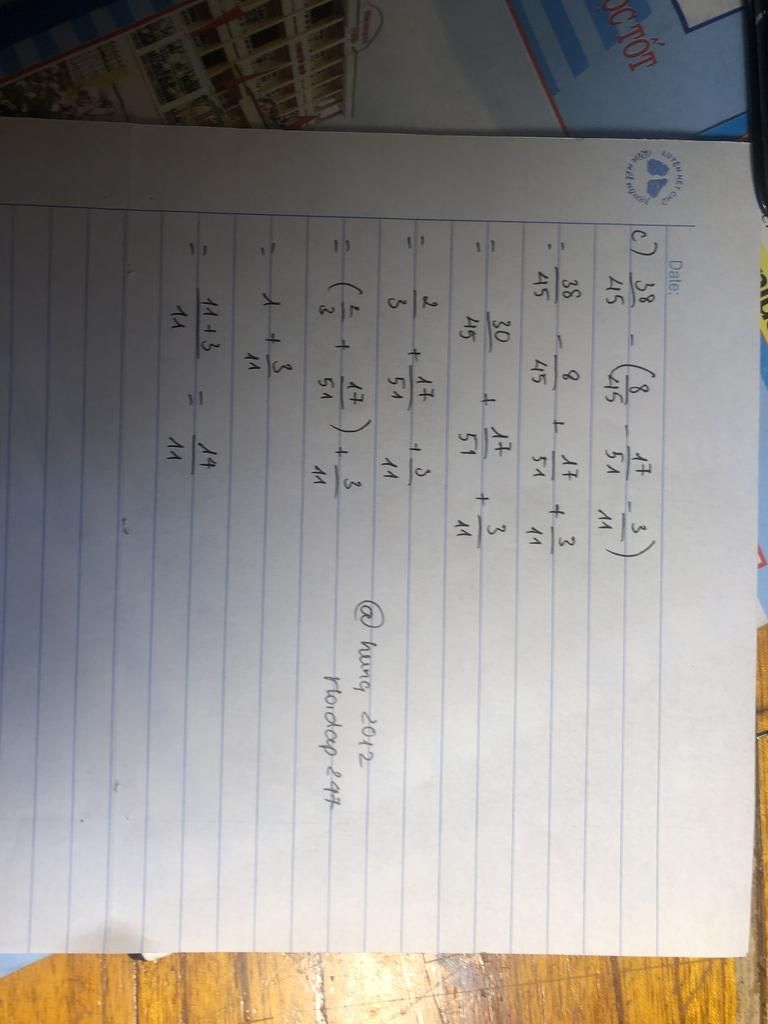 ỌC TỐT
LUYỆN NÉT CHỮ
Date:
c) 38/45 - (8/45 - 17/51 - 3/11)
= 38/45 - 8/45 + 17/51 + 3/11
= 30/45 + 17/51 + 3/11
= 2/3 + 17/51 + 3/11
= (2/3 + 17/51) + 3/11
= 1 + 3/11
= 11+3/11 = 14/11
@hung 2012
Hoidap247